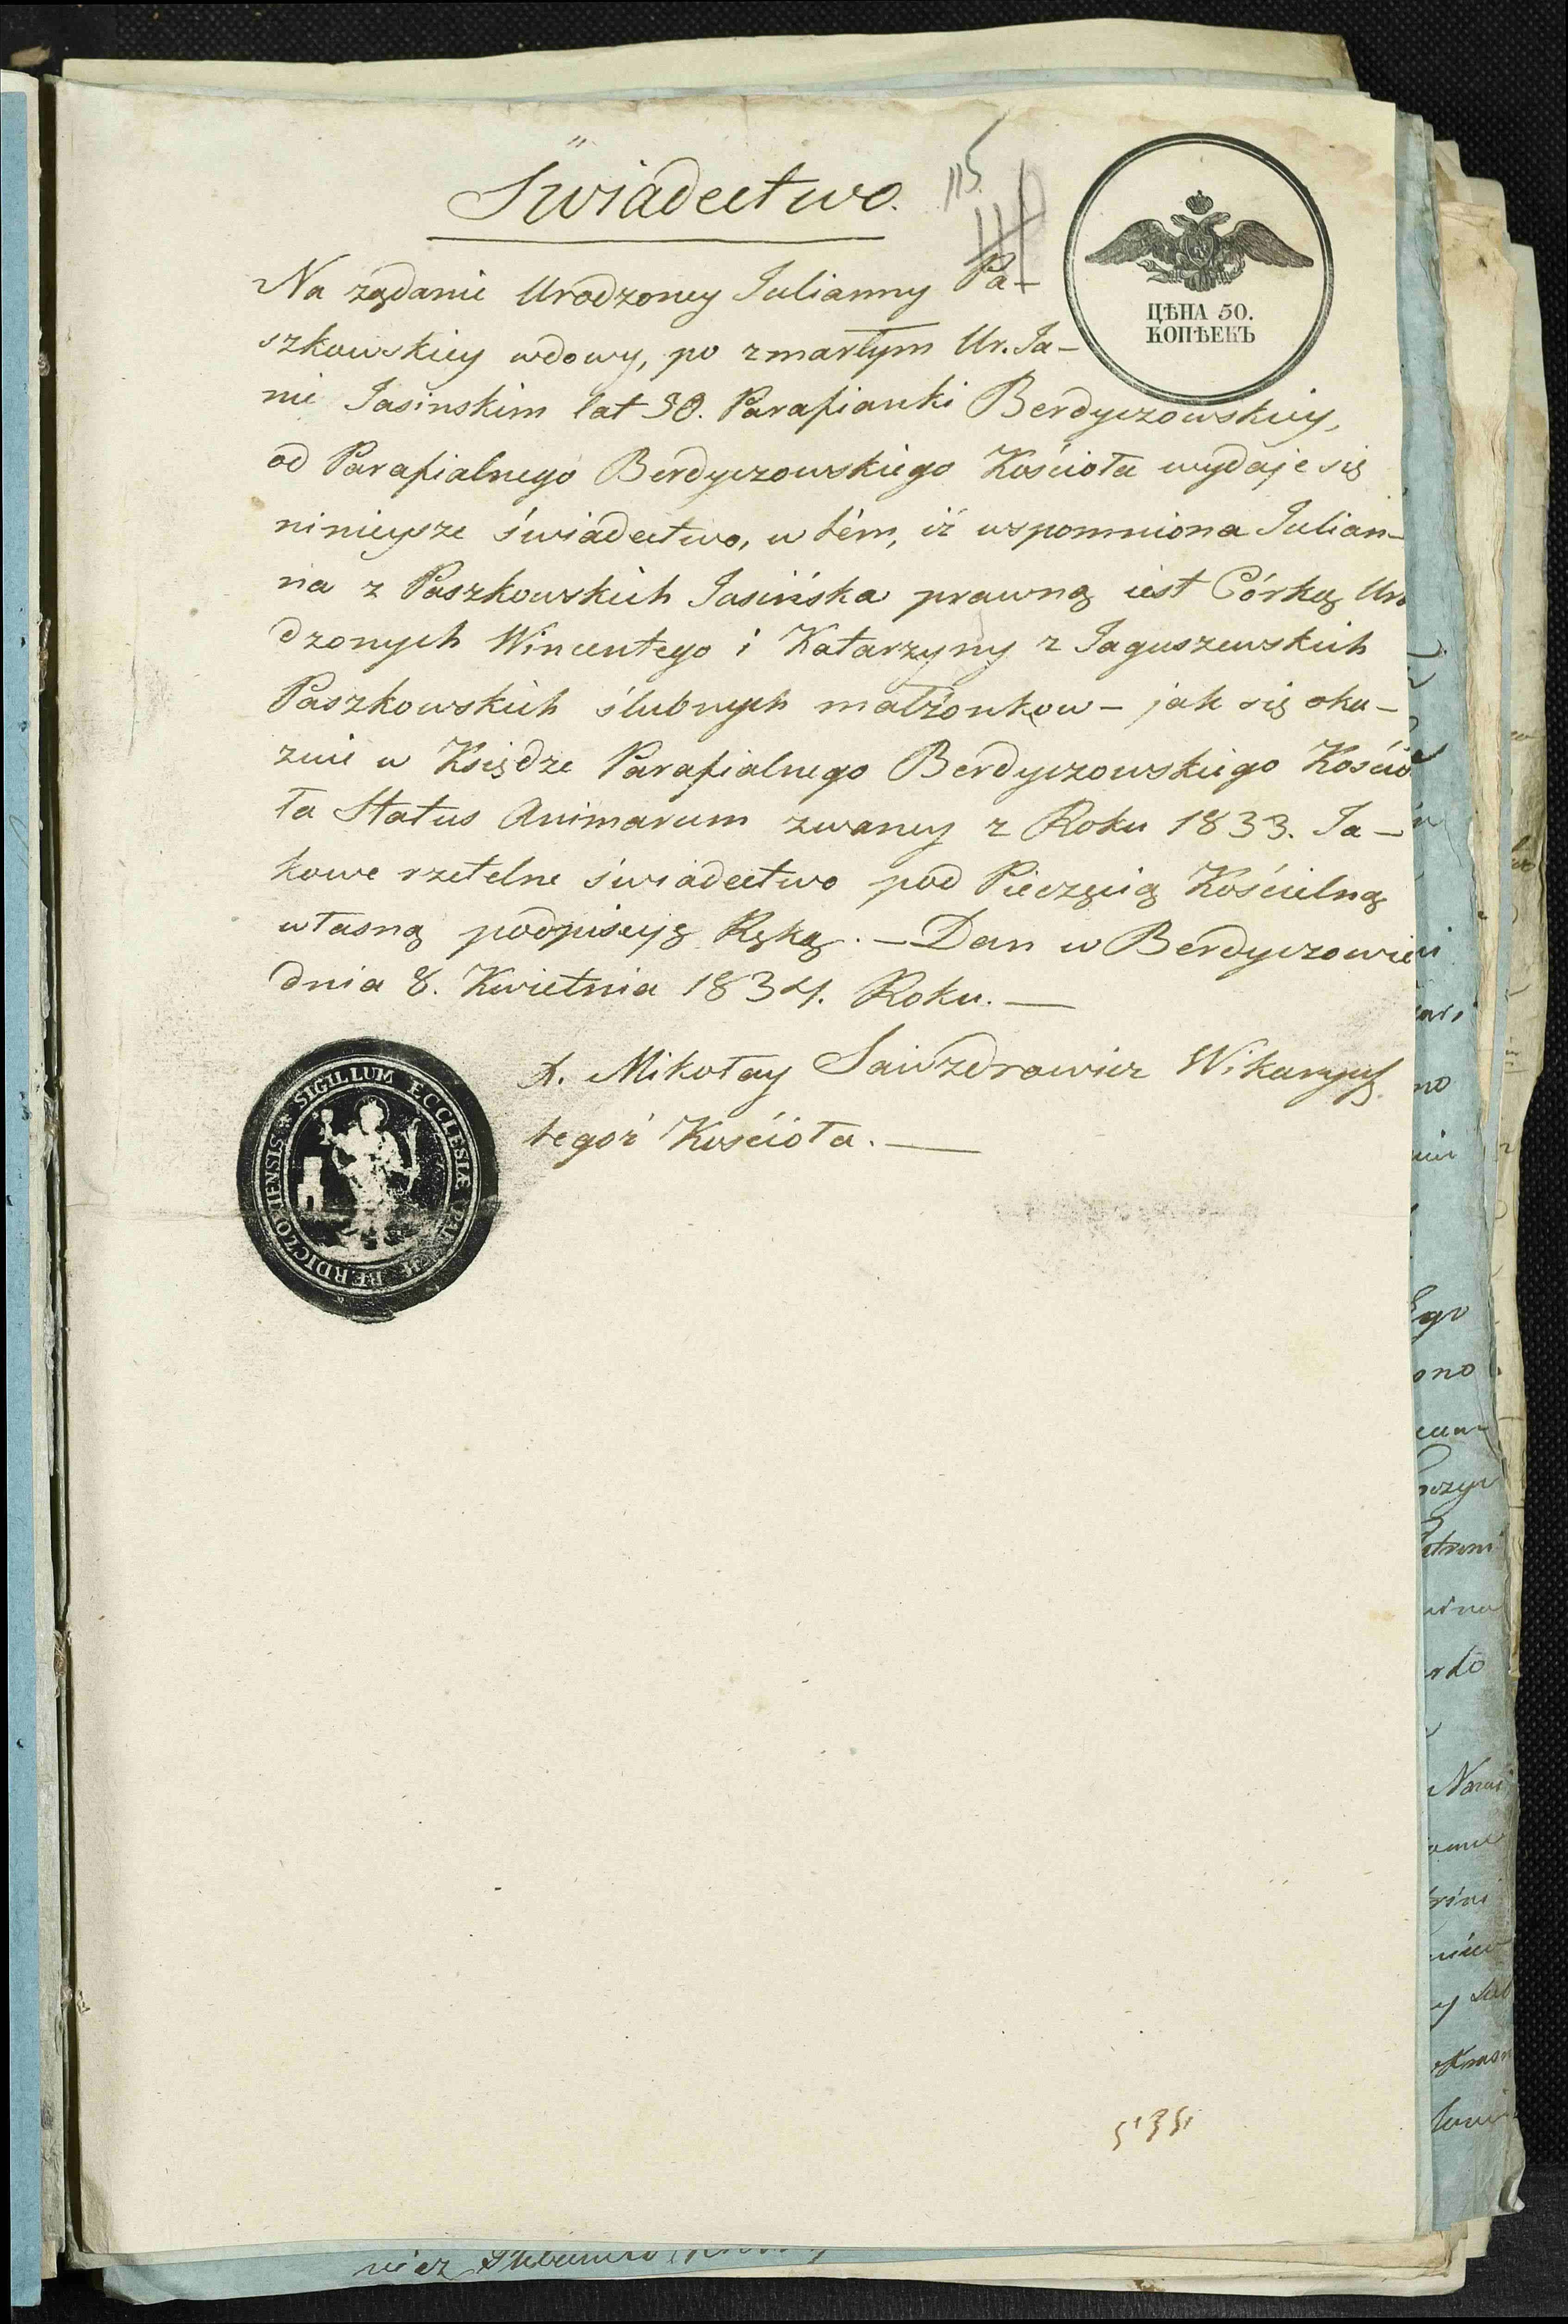 Świadectwo.
115.
ЦѢНА 50.
КОПѢЕКЪ
Na ządanie Urodzoney Julianny Pa-
szkowskiey wdowy, po zmarłym Ur. Ja-
nie Jasinskim lat 30. Parafianki Berdyczowskiey,
od Parafialnego Berdyczowskiego Kościoła wydaje się
ninieysze świadectwo, w tém, iż wspomniona Julian-
na z Paszkowskich Jasińska prawną iest Córką Uro
dzonych Wincentego i Katarzyny z Jaguszewskich
Paszkowskich ślubnych małżonkow - jak się oka-
zuie w Księdze Parafialnego Berdyczowskiego Kościo
ła Status Animarum zwaney z Roku 1833. Ja-
kowe rzetelne świadectwo pod Pieczęcią Kościelną
własną podpisuję Ręką. - Dan w Berdyczowie
dnia 8. Kwietnia 1834. Roku. -
X. Mikołay Wikaryusz
tegoż Kościoła. -
SIGILLUM ECCLESIÆ BERDICZOVIENSIS